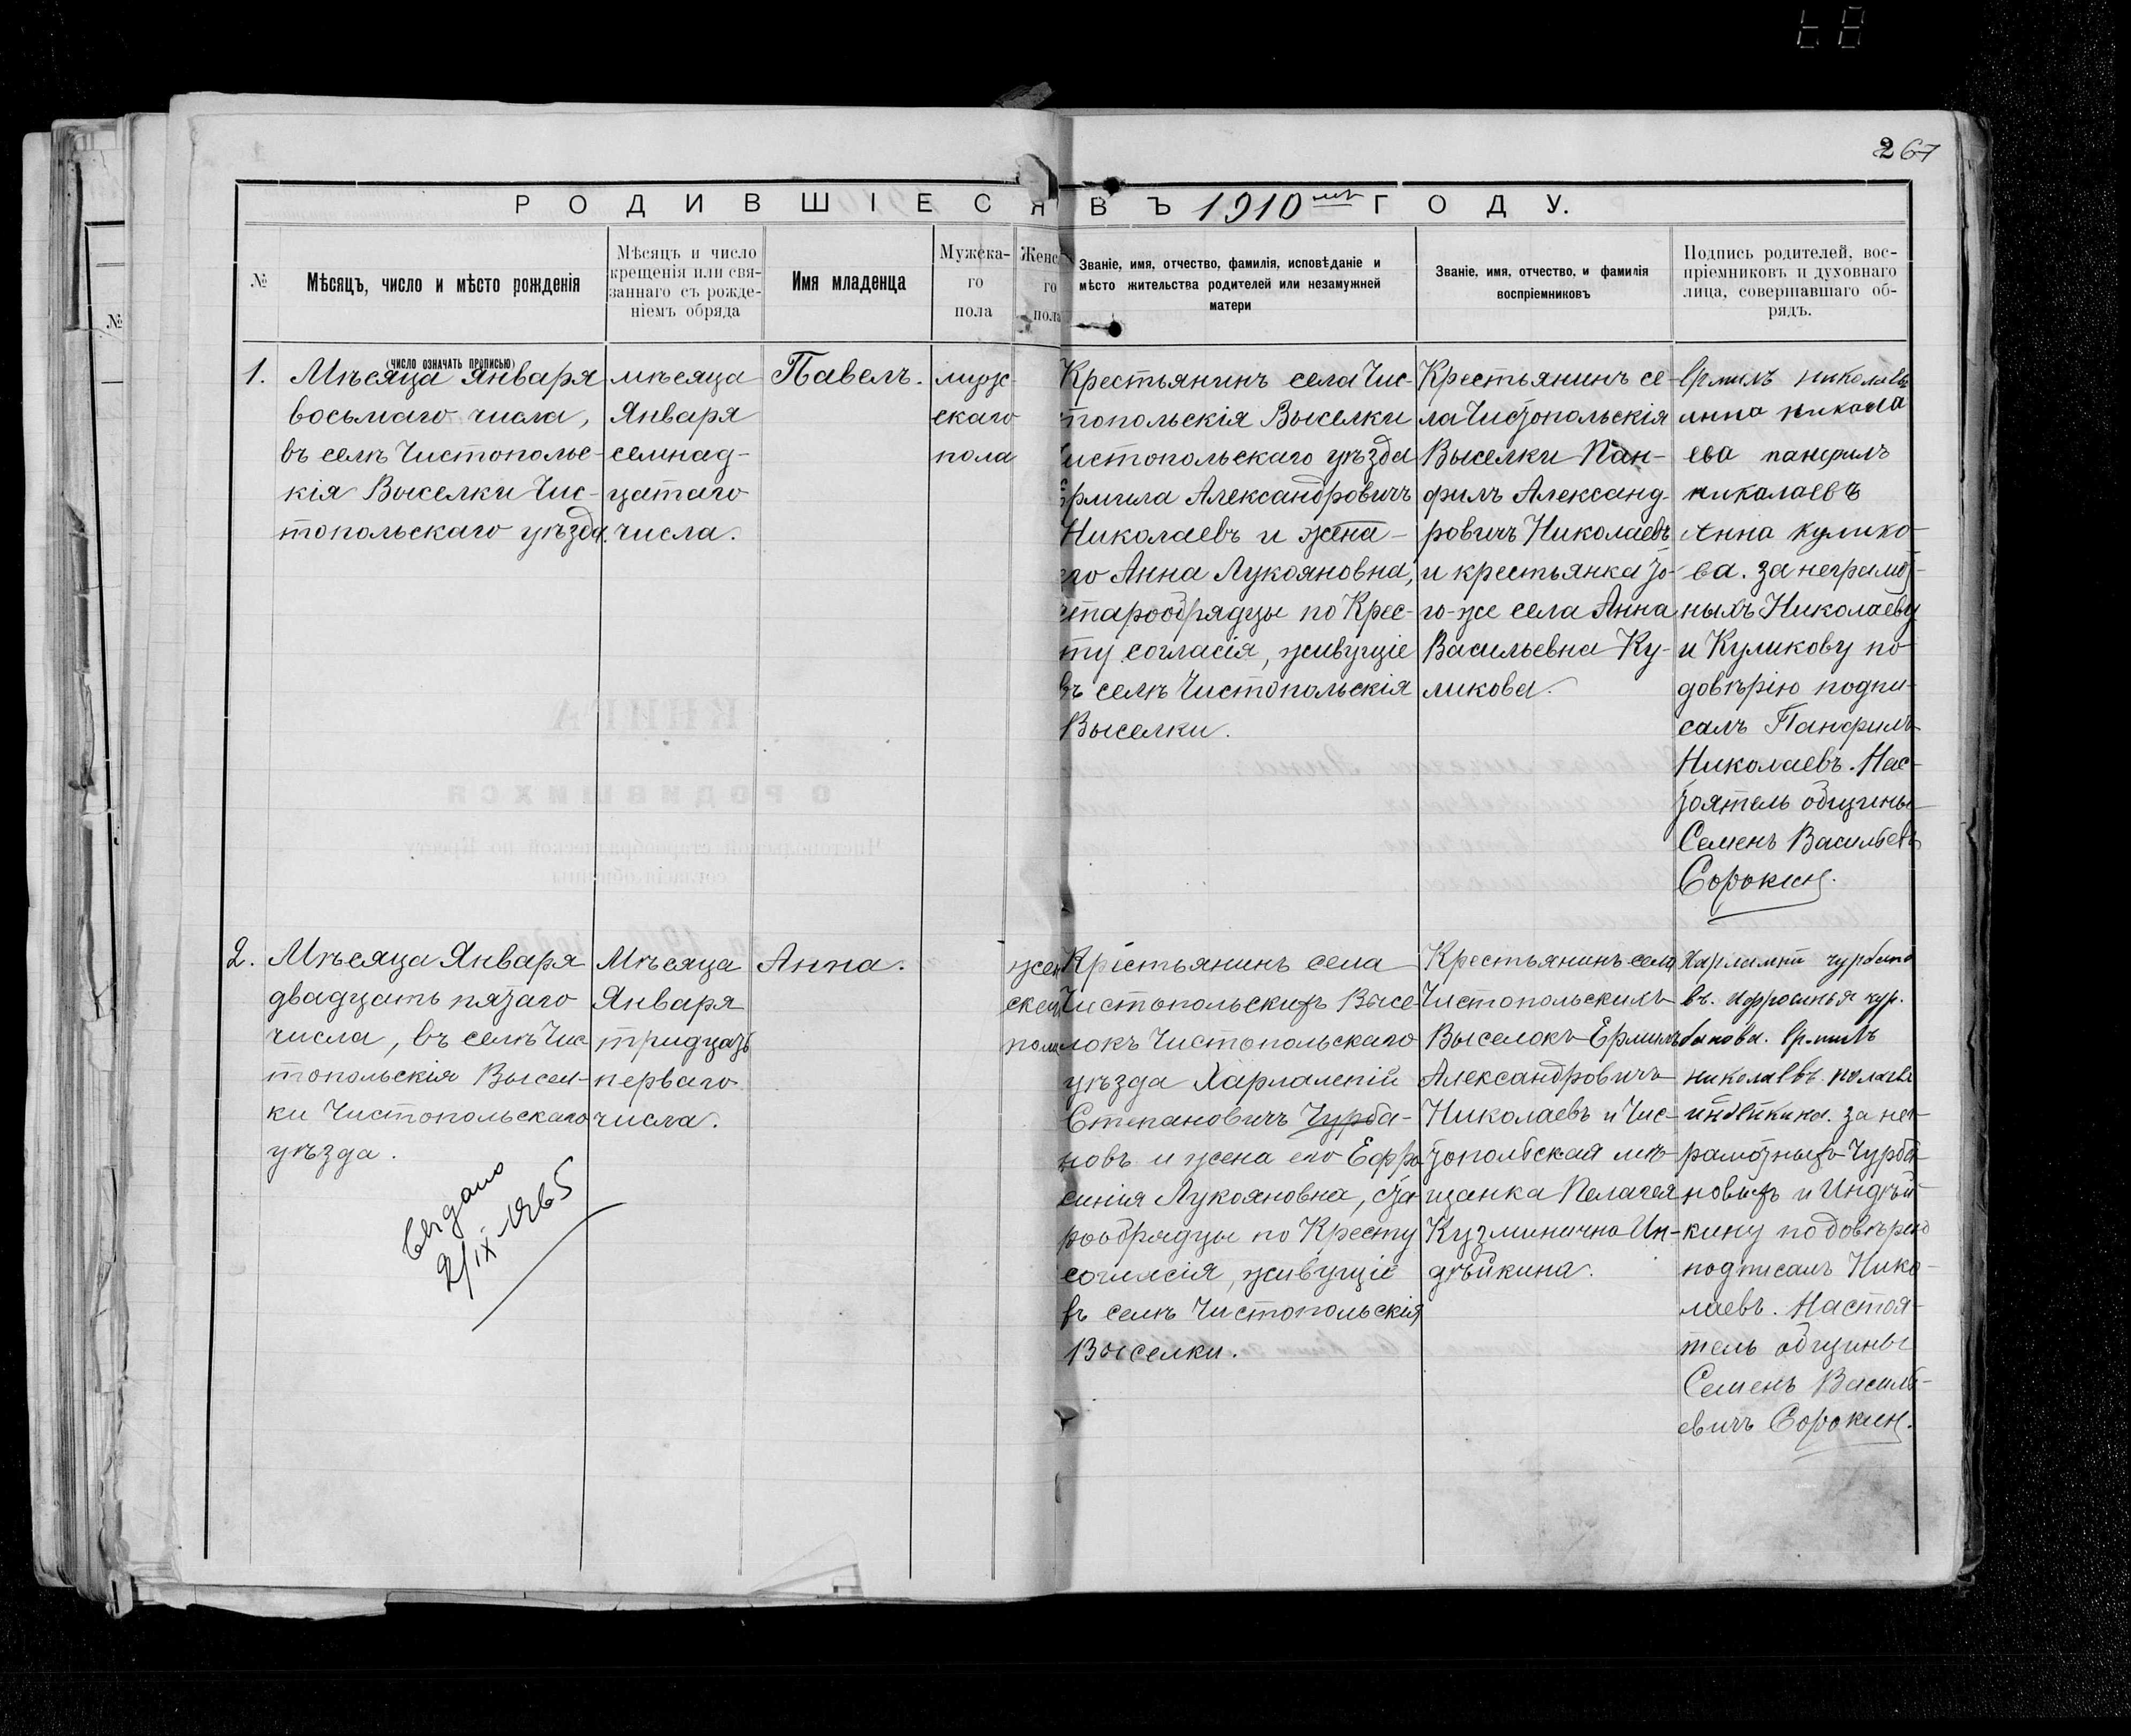 267
РОДИВШІЕСЯ ВЪ 1910мъ ГОДУ.
№
Мѣсяцъ, число и мѣсто рожденія
(число означать прописью)
Мѣсяцъ и число
крещенія или свя-
заннаго съ рожде-
ніемъ обряда
Имя младенца
Мужска-
го
пола
Женс
го
пола
Званіе, имя, отчество, фамилія, исповѣданіе и
мѣсто жительства родителей или незамужней
матери
Званіе, имя, отчество, и фамилія
воспріемниковъ
Подпись родителей, вос-
пріемниковъ и духовнаго
лица, совершавшаго об-
рядъ.
1.
Мѣсяца Января
восьмаго числа,
въ селѣ Чистополье-
кія Выселки Чис-
топольскаго уѣзда.
мѣсяца
Января
семнад-
цатаго
числа.
Павелъ.
муж-
скаго
пола
Крестьянинъ села Чис-
топольскія Выселки
Чистопольскаго уѣзда
Ермила Александровичъ
Николаевъ и жена
его Анна Лукояновна,
старообрядцы по Крес-
ту согласія, живущіе
въ селѣ Чистопольскія
Выселки.
Крестьянинъ се-
ла Чистопольскія
Выселки Пан-
филъ Александ-
ровичъ Николаевъ
и крестьянка то-
го-же села Анна
Васильевна Ку-
ликова.
Ермилъ николаев
анна никола
ева панфилъ
николаевъ
Анна кулико-
ва. За неграмот-
ныхъ Николаеву
и Куликову по
довѣрію подпи-
салъ Панфилъ
Николаевъ. Нас-
тоятель общины
Семенъ Васильевъ
Сорокин.
2.
Мѣсяца Января
двадцать пятаго
числа, въ селѣ Чис
топольскія Высел-
ки Чистопольскаго
уѣзда.
Мѣсяца
Января
тридцать
перваго
числа.
Анна.
жен
скаго
пола
Крестьянинъ села
Чистопольскихъ Высе-
локъ Чистопольскаго
уѣзда Харлампій
Степановичъ Чурба-
новъ и жена его Ефро
синія Лукояновна, ста
рообрядцы по Кресту
согласія, живущіе
въ селѣ Чистопольскія
Выселки.
Крестьянинъ села
Чистопольскихъ
Выселокъ Ермилъ
Александровичъ
Николаевъ и Чис-
топольская мѣ-
щанка Пелагея
Кузминична Ин-
дѣйкина.
Харламий чурбано
въ. Ифросинья чур.
банова. Ермилъ
николаевъ. полагея
индейкина. за нег-
рамотныхъ Чурба
новыхъ и Индѣй-
кину по довѣрію
подписалъ Нико-
лаевъ. Настоя-
тель общины
Семенъ Василь-
евичъ Сорокин.
2/IX-1965